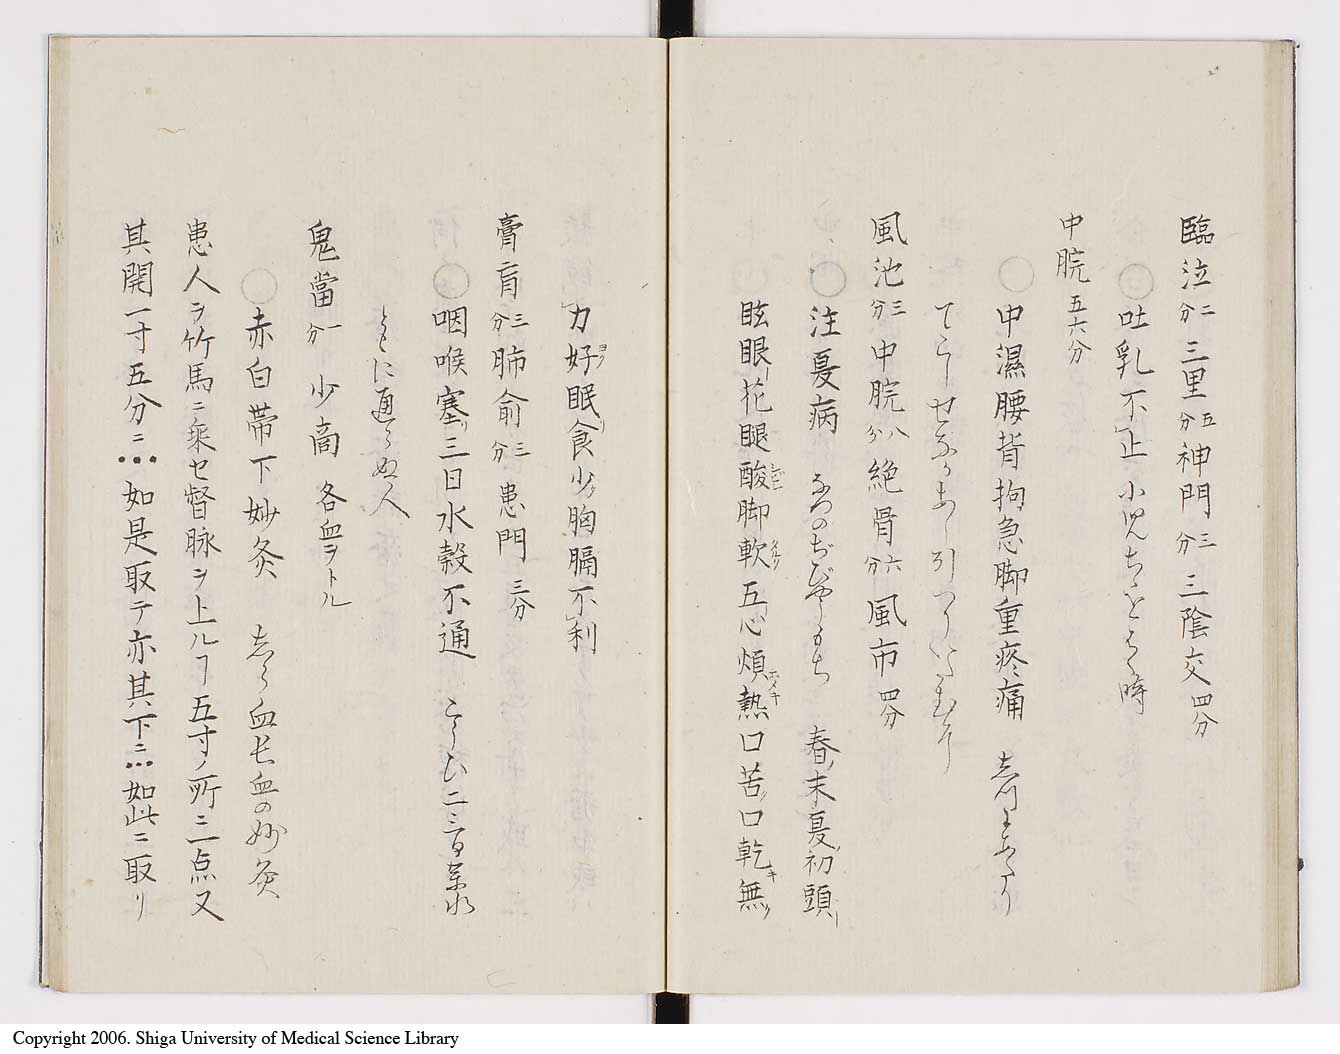 臨泣二分三里五分神門三分三陰交四分
○吐乳不止 小児ちゝをはく時
中脘五六分
○中濕腰背拘急脚重疼痛
風池三分中脘八分絶骨六分風市四分
○注夏病 春ノ末夏ノ初頭
眩眼花腿酸脚軟五心煩熱口苦ク口乾キ無ク
力好ヨク眠リ食少ク胸膈不利
膏肓三分肺俞三分患門三分
○咽喉塞リ三日水穀不通
とくに通らぬ人
鬼當一分 少商 各血ヲトル
○赤白帯下妙灸 しら血長血の妙灸
患人ヲ竹馬ニ乗セ督脉ヲ上ルヿ五寸ノ所ニ一点又
其開一寸五分ニ如是取テ亦其下ニ如此ニ取リ
Copyright 2006. Shiga University of Medical Science Library